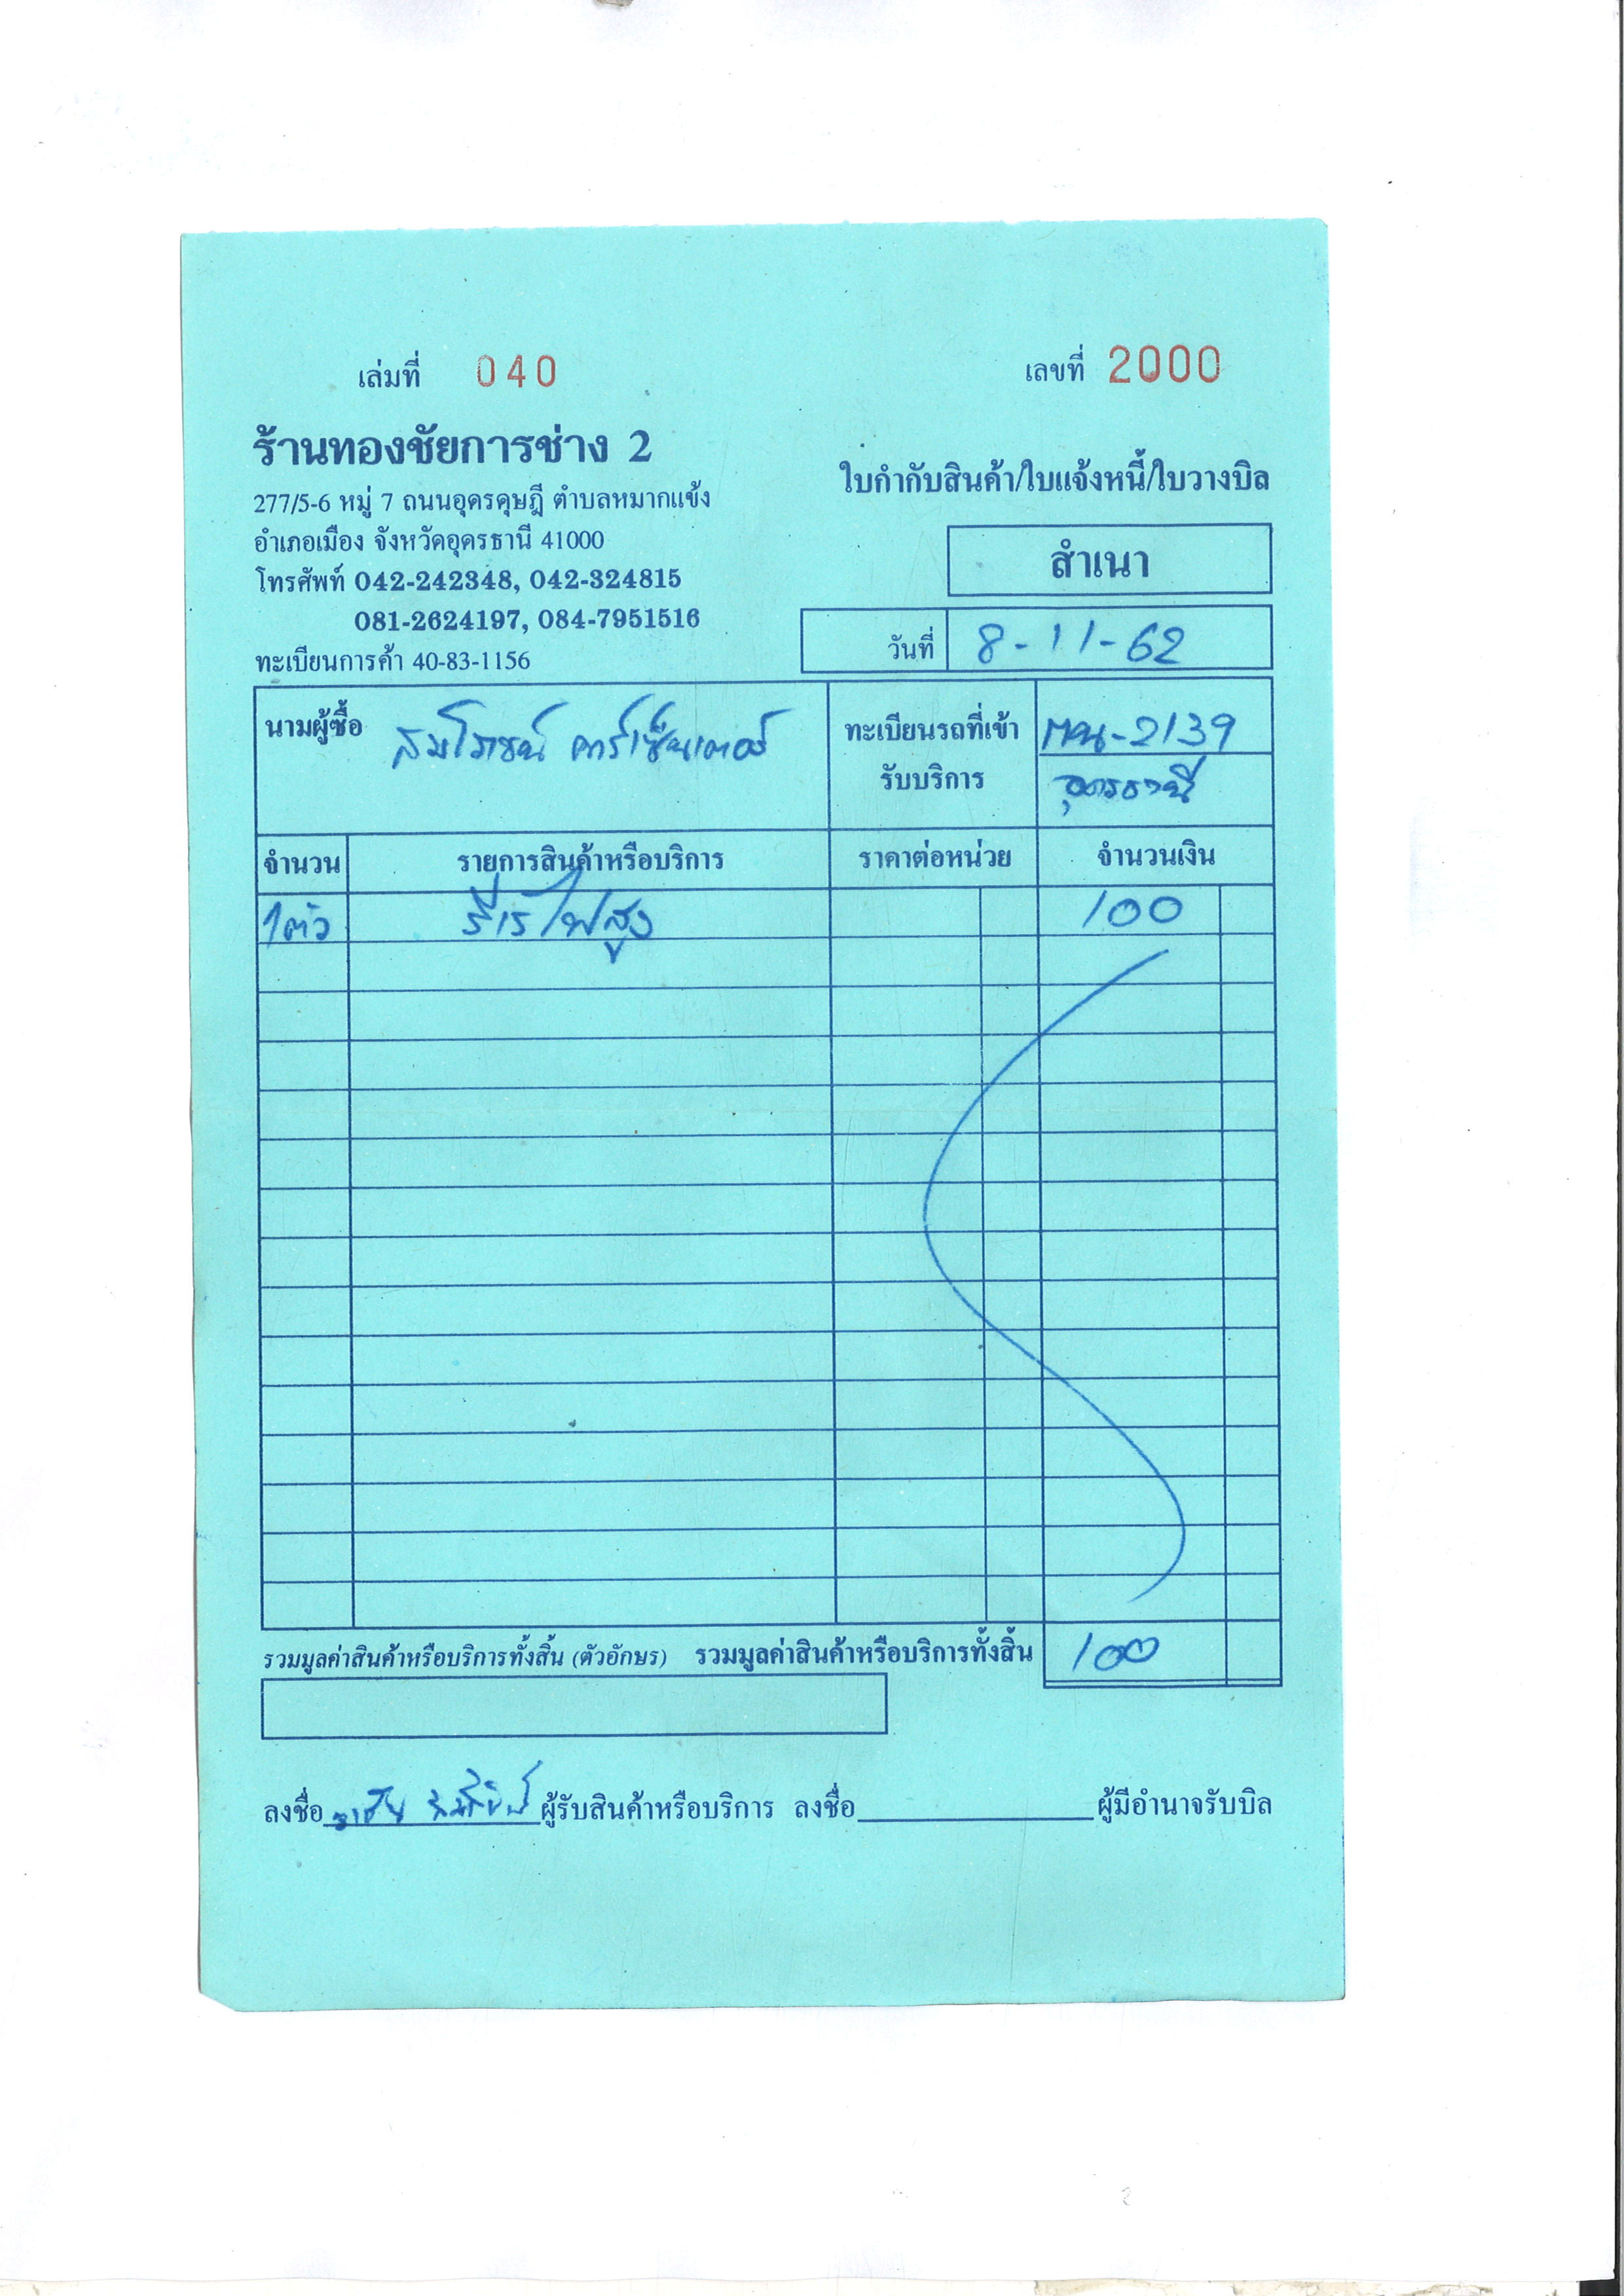 เล่มที่ 040
เลขที่ 2000
ร้านทองชัยการช่าง 2
277/5-6 หมู่ 7 ถนนอุดรดุษฎี ตำบลหมากแข้ง
อำเภอเมือง จังหวัดอุดรธานี 41000
โทรศัพท์ 042-242348, 042-324815
081-2624197, 084-7951516
ทะเบียนการค้า 40-83-1156
ใบกำกับสินค้า/ใบแจ้งหนี้/ใบวางบิล
สำเนา
วันที่ 8-11-62
นามผู้ซื้อ สมโภชน์ คาร์เซ็นเตอร์
ทะเบียนรถที่เข้า -2139
รับบริการ อุดรธานี
จำนวน รายการสินค้าหรือบริการ ราคาต่อหน่วย จำนวนเงิน
1ตัว รีเรไฟสูง 100
รวมมูลค่าสินค้าหรือบริการทั้งสิ้น (ตัวอักษร) รวมมูลค่าสินค้าหรือบริการทั้งสิ้น 100
ลงชื่อ ผู้รับสินค้าหรือบริการ ลงชื่อ ผู้มีอำนาจรับบิล